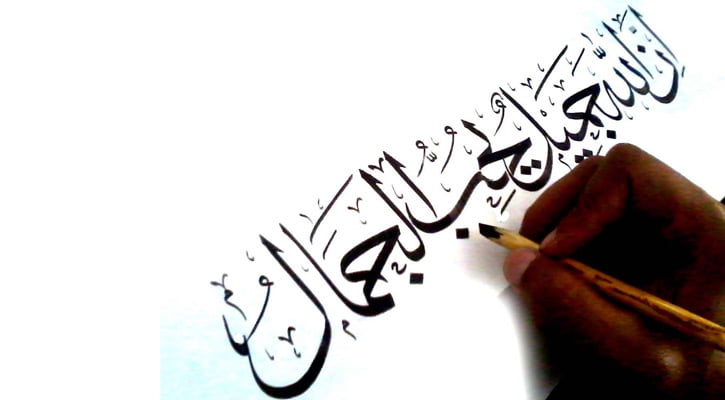 إن الله جميل يحب الجمال